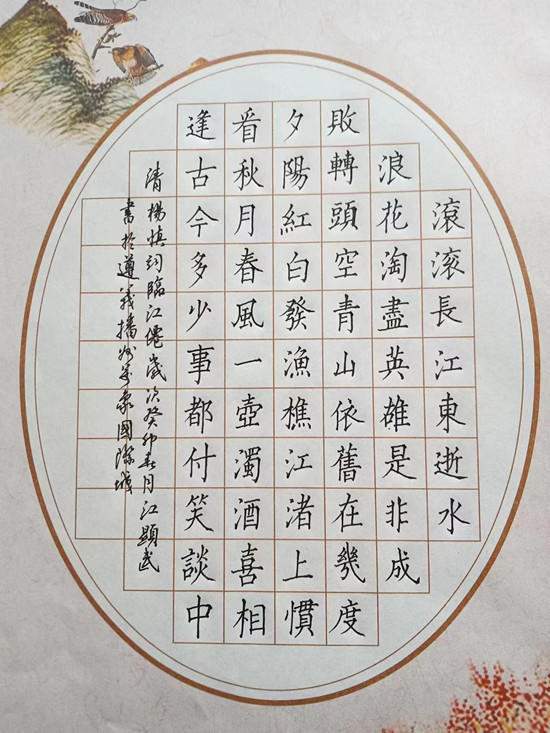 滾滚長江東逝水
浪花淘盡英雄是非成
敗轉頭空青山依舊在幾度
夕陽紅白發漁樵江渚上慣
看秋月春風一壺濁酒喜相
逢古今多少事都付笑談中
清楊慎詞臨江僊歲次癸卯春月江顯武
書於遵義播州萬象國際城